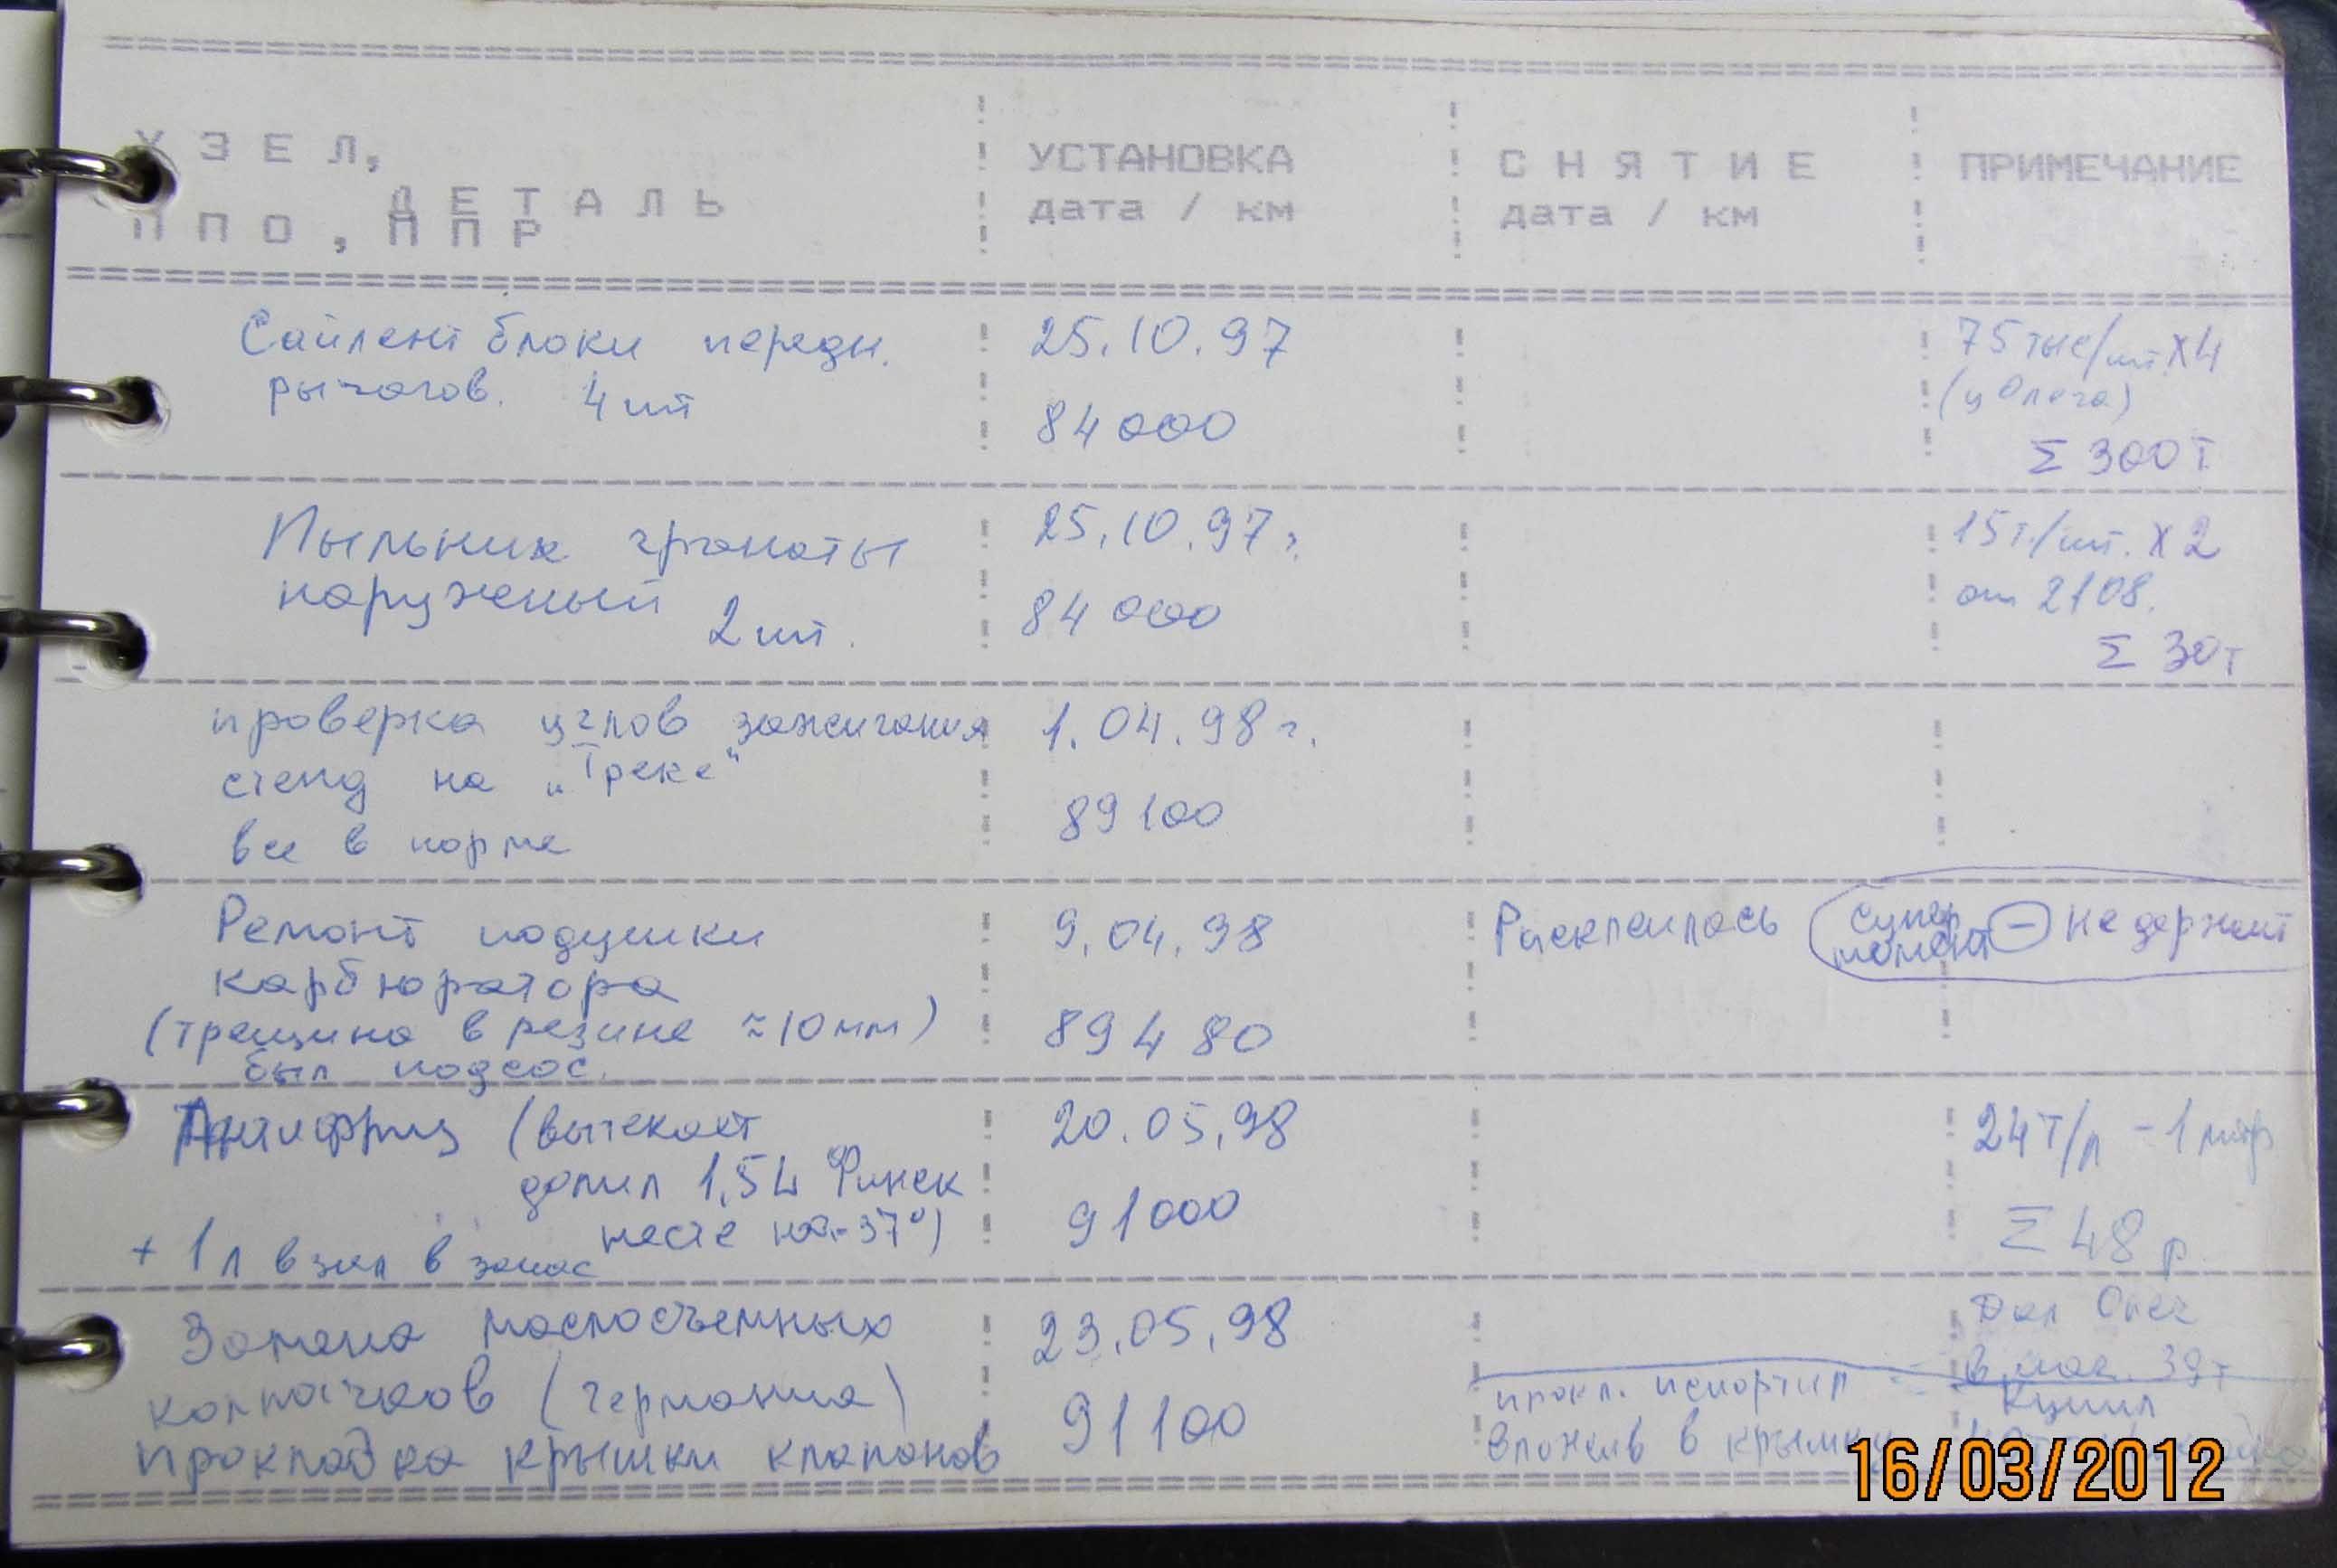 УЗЕЛ,
ДЕТАЛЬ
ППО, ППР
УСТАНОВКА
дата / км
СНЯТИЕ
дата / км
ПРИМЕЧАНИЕ
Сайлентблоки передн.
рычагов. 4 шт
25.10.97
84000
75 тыс/шт. X 4
(у Олега)
Σ 300 т
Пыльник гранаты
наружный
2 шт.
25.10.97 г.
84000
15 т./шт. X 2
от 2108.
Σ 30 т
проверка углов зажигания
стенд на „Треке"
все в норме
1.04.98 г.
89100
Ремонт подушки
карбюратора
(трещина в резине ≈ 10 мм)
был подсос.
9.04.98
89480
Расклеилась
супер
момент
– не держит
Антифриз (вытекает
долил 1,5 L Финск
+ 1 л взял в запас
на -37°)
20.05.98
91000
24 т/л - 1 литр
Σ 48 р.
Замена маслосъемных
колпачков (Германия)
прокладка крышки клапанов
23.05.98
91100
Дал Олег
в маг. 39 т
прокл. испортил
вложив в крышку
Купил
16/03/2012